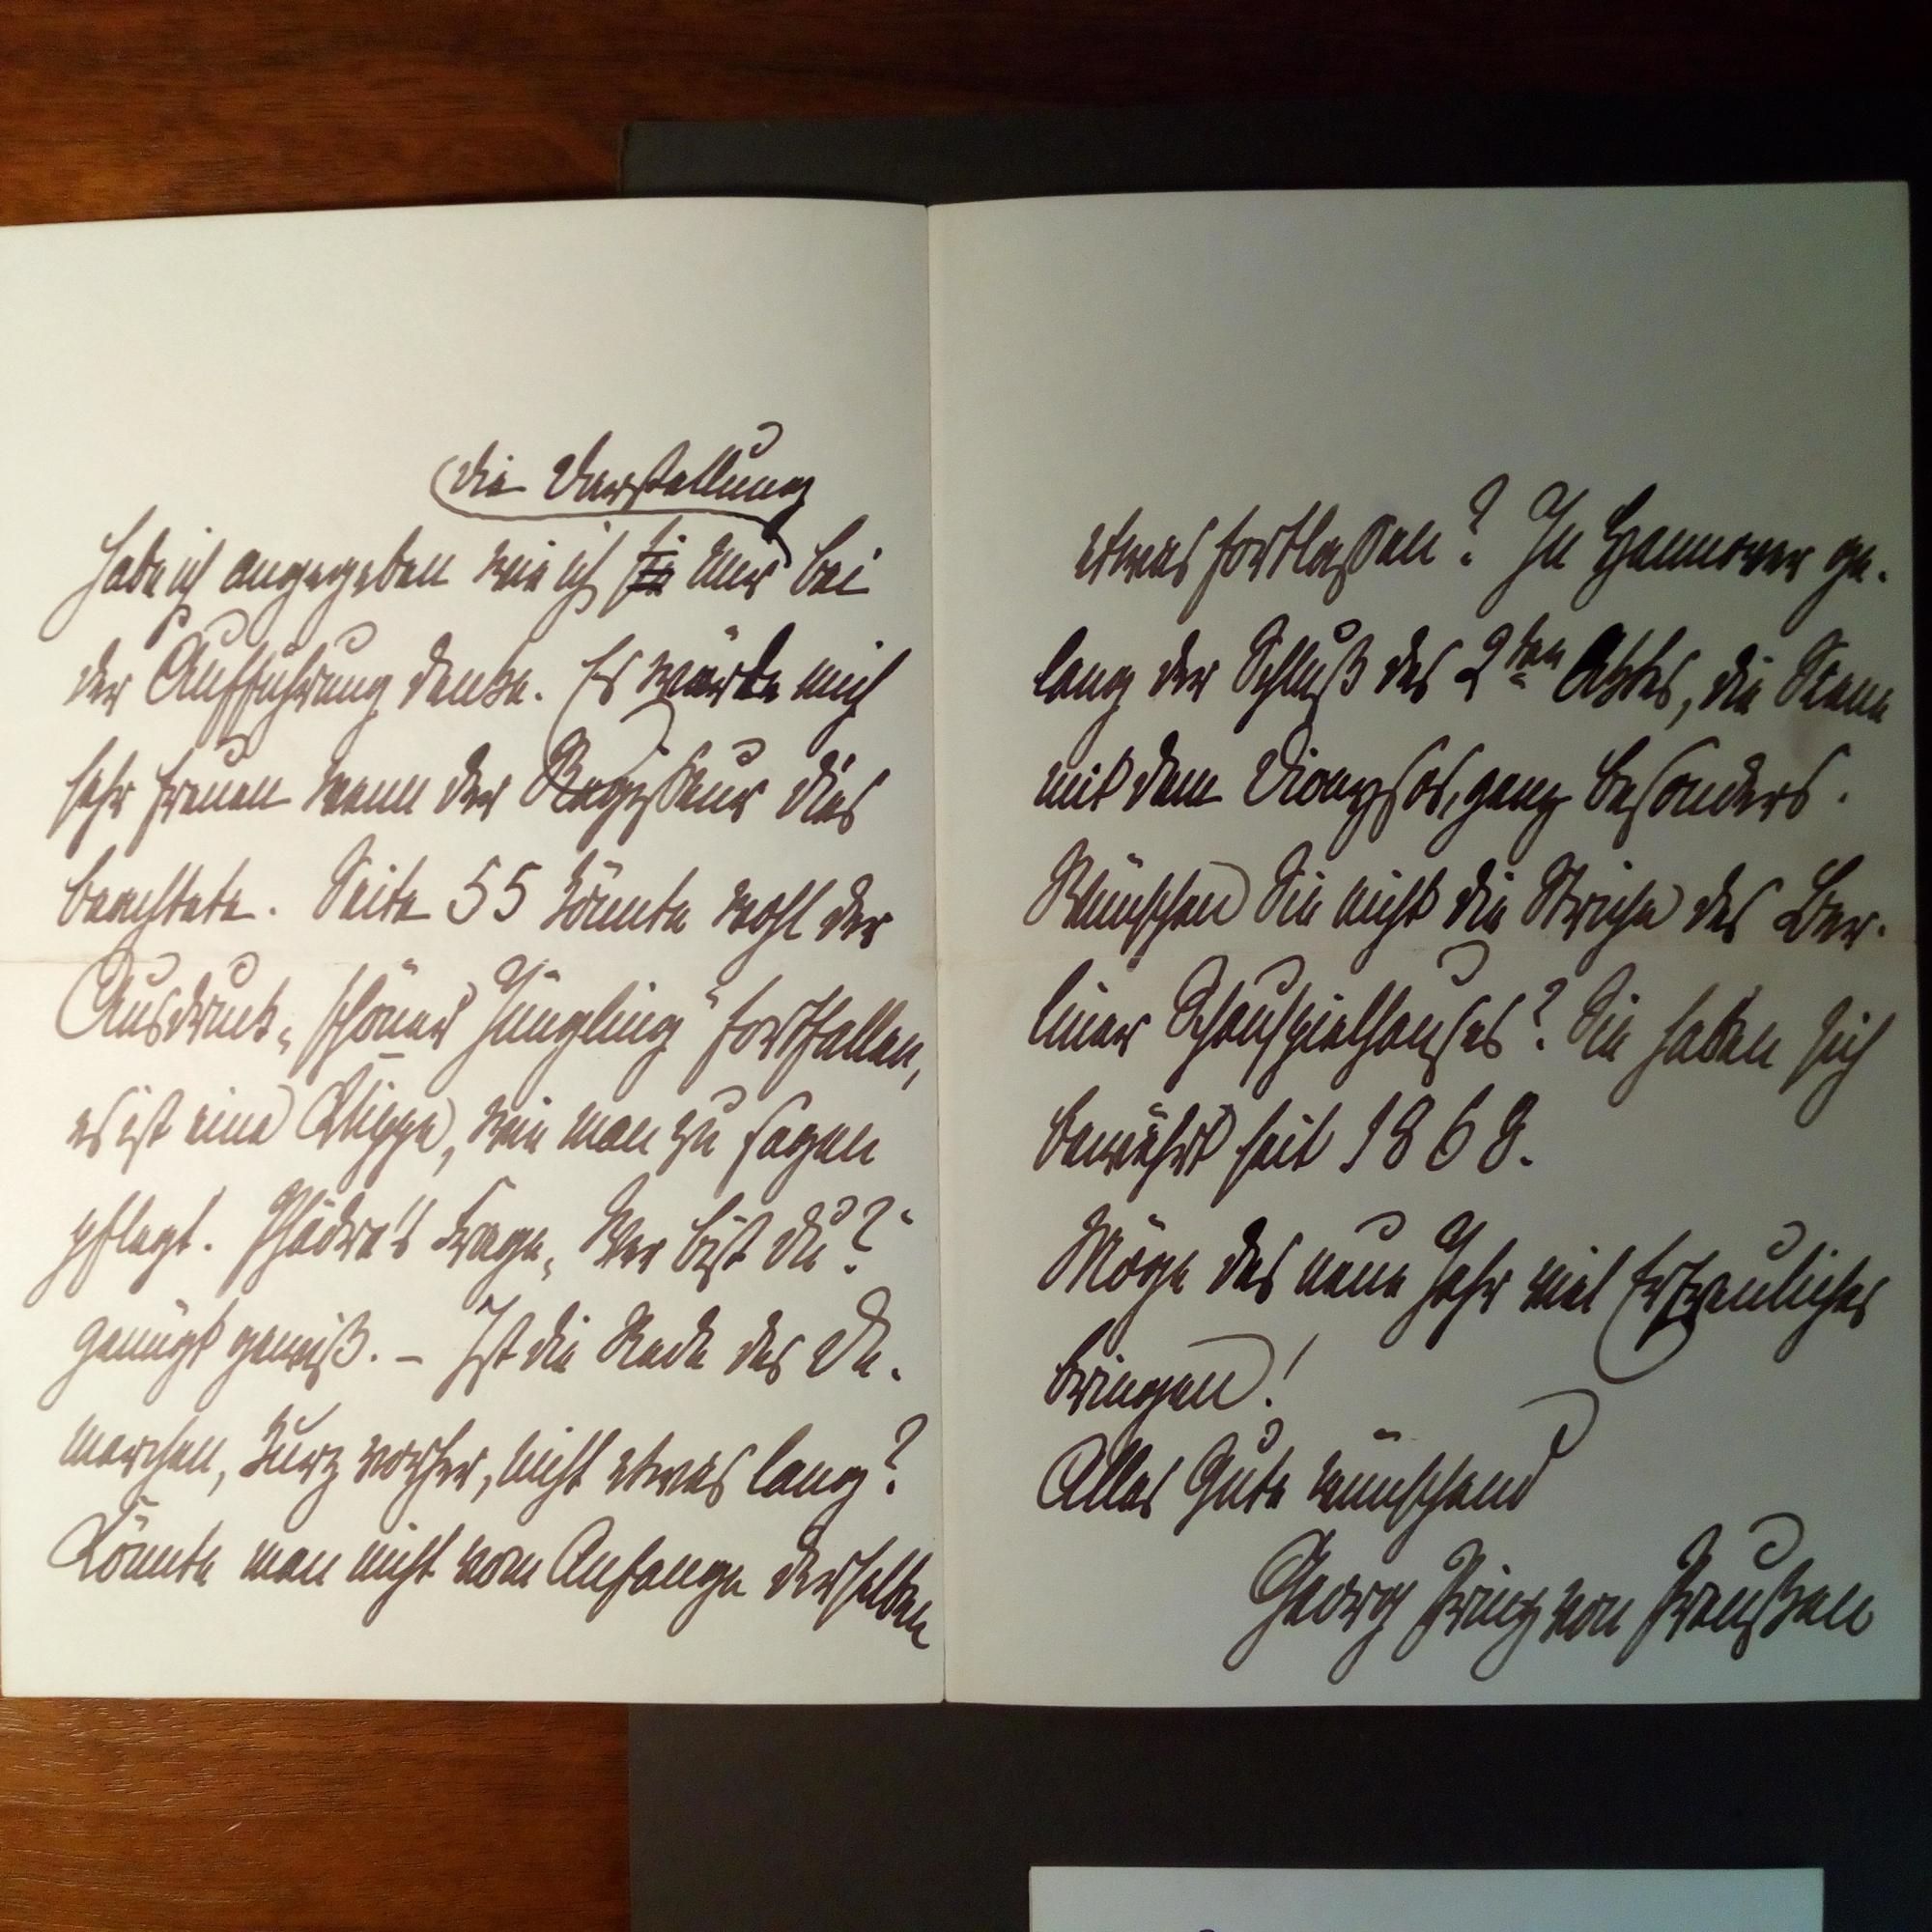 die Darstellung
habe ich angegeben wie ich sie mir bei
der Aufführung denke. Es würde mich
sehr freuen wenn der Regisseur dies
beachtete. Seite 55 könnte wohl der
Ausdruck „schöner Jüngling" fortfallen,
es ist eine Klippe, wie man zu sagen
pflegt. Phädra's Frage „Wer bist du?"
genügt gewiß. – Ist die Rede des De-
marchen, kurz vorher, nicht etwas lang?
Könnte man nicht vom Anfange derselben
etwas fortlaßen? In Hannover ge-
lang der Schluß des 2ten Aktes, die Scene
mit dem Dionysos, ganz besonders.
Wünschen Sie nicht die Striche des Ber-
liner Schauspielhauses? Sie haben sich
bewährt seit 1868.
Möge das neue Jahr viel Erfreuliches
bringen!
Alles Gute wünschend
Georg Prinz von Preußen